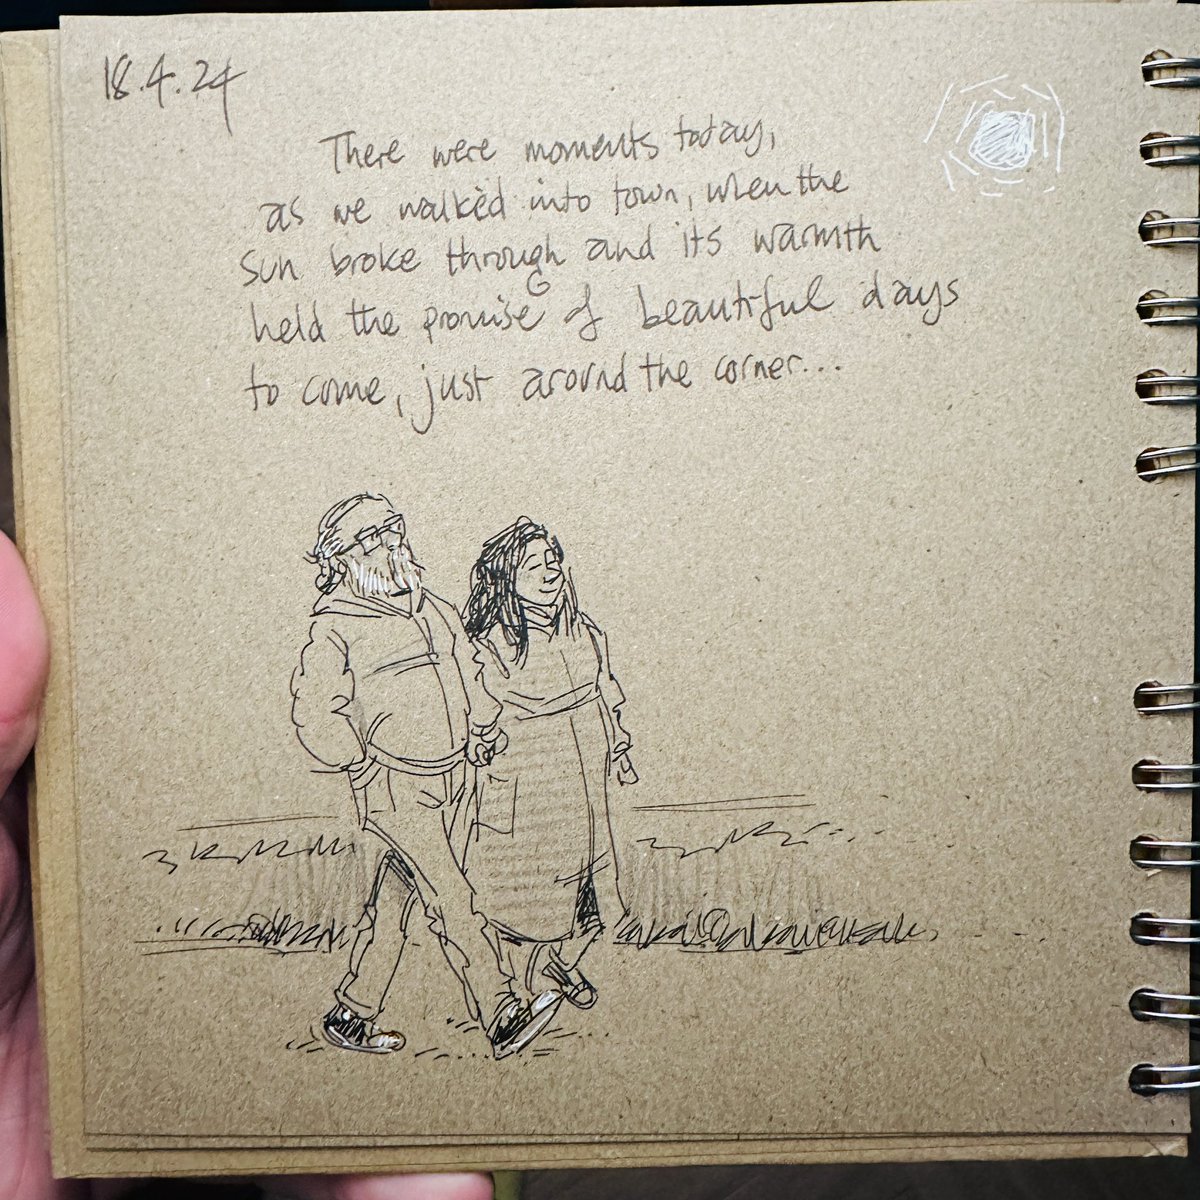 18.4.24
There were moments today,
as we walked into town, when the
sun broke through and its warmth
held the promise of beautiful days
to come, just around the corner...